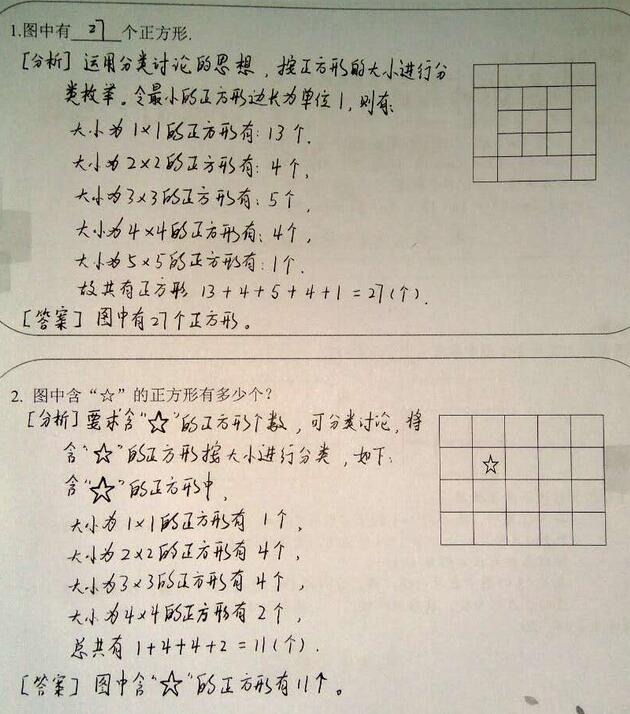 1.图中有 27 个正方形.
[分析] 运用分类讨论的思想，按正方形的大小进行分
类枚举。令最小的正方形边长为单位1，则有:
大小为1×1的正方形有: 13个.
大小为2×2的正方形有: 4个,
大小为3×3的正方形有: 5个,
大小为4×4的正方形有: 4个,
大小为5×5的正方形有: 1个.
故共有正方形 13+4+5+4+1=27(个).
[答案] 图中有27个正方形。
2. 图中含“☆”的正方形有多少个?
[分析] 要求含“☆”的正方形个数，可分类讨论，将
含“☆”的正方形按大小进行分类，如下:
含“☆”的正方形中,
大小为1×1的正方形有 1个,
大小为2×2的正方形有 4个,
大小为3×3的正方形有 4个,
大小为4×4的正方形有 2个,
总共有 1+4+4+2=11(个).
[答案] 图中含“☆”的正方形有11个。
☆